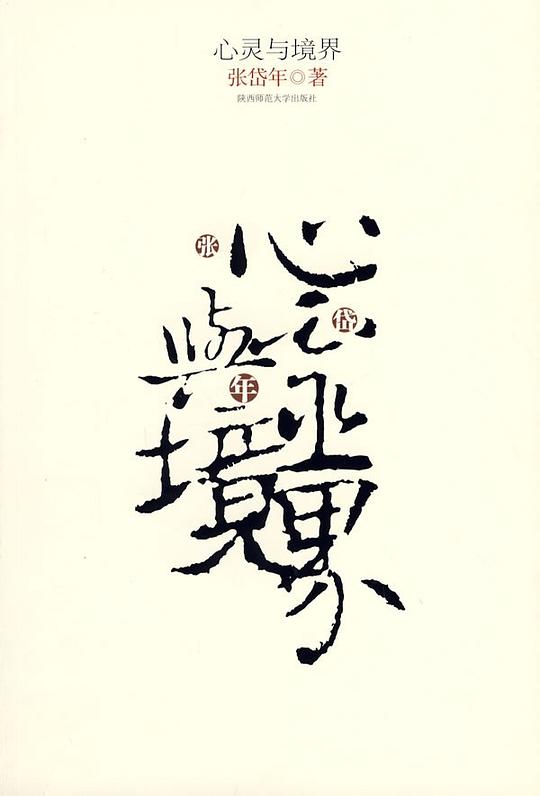 心灵与境界
张岱年◎著
陕西师范大学出版社
张
心
岱
靈
與
年
境
界